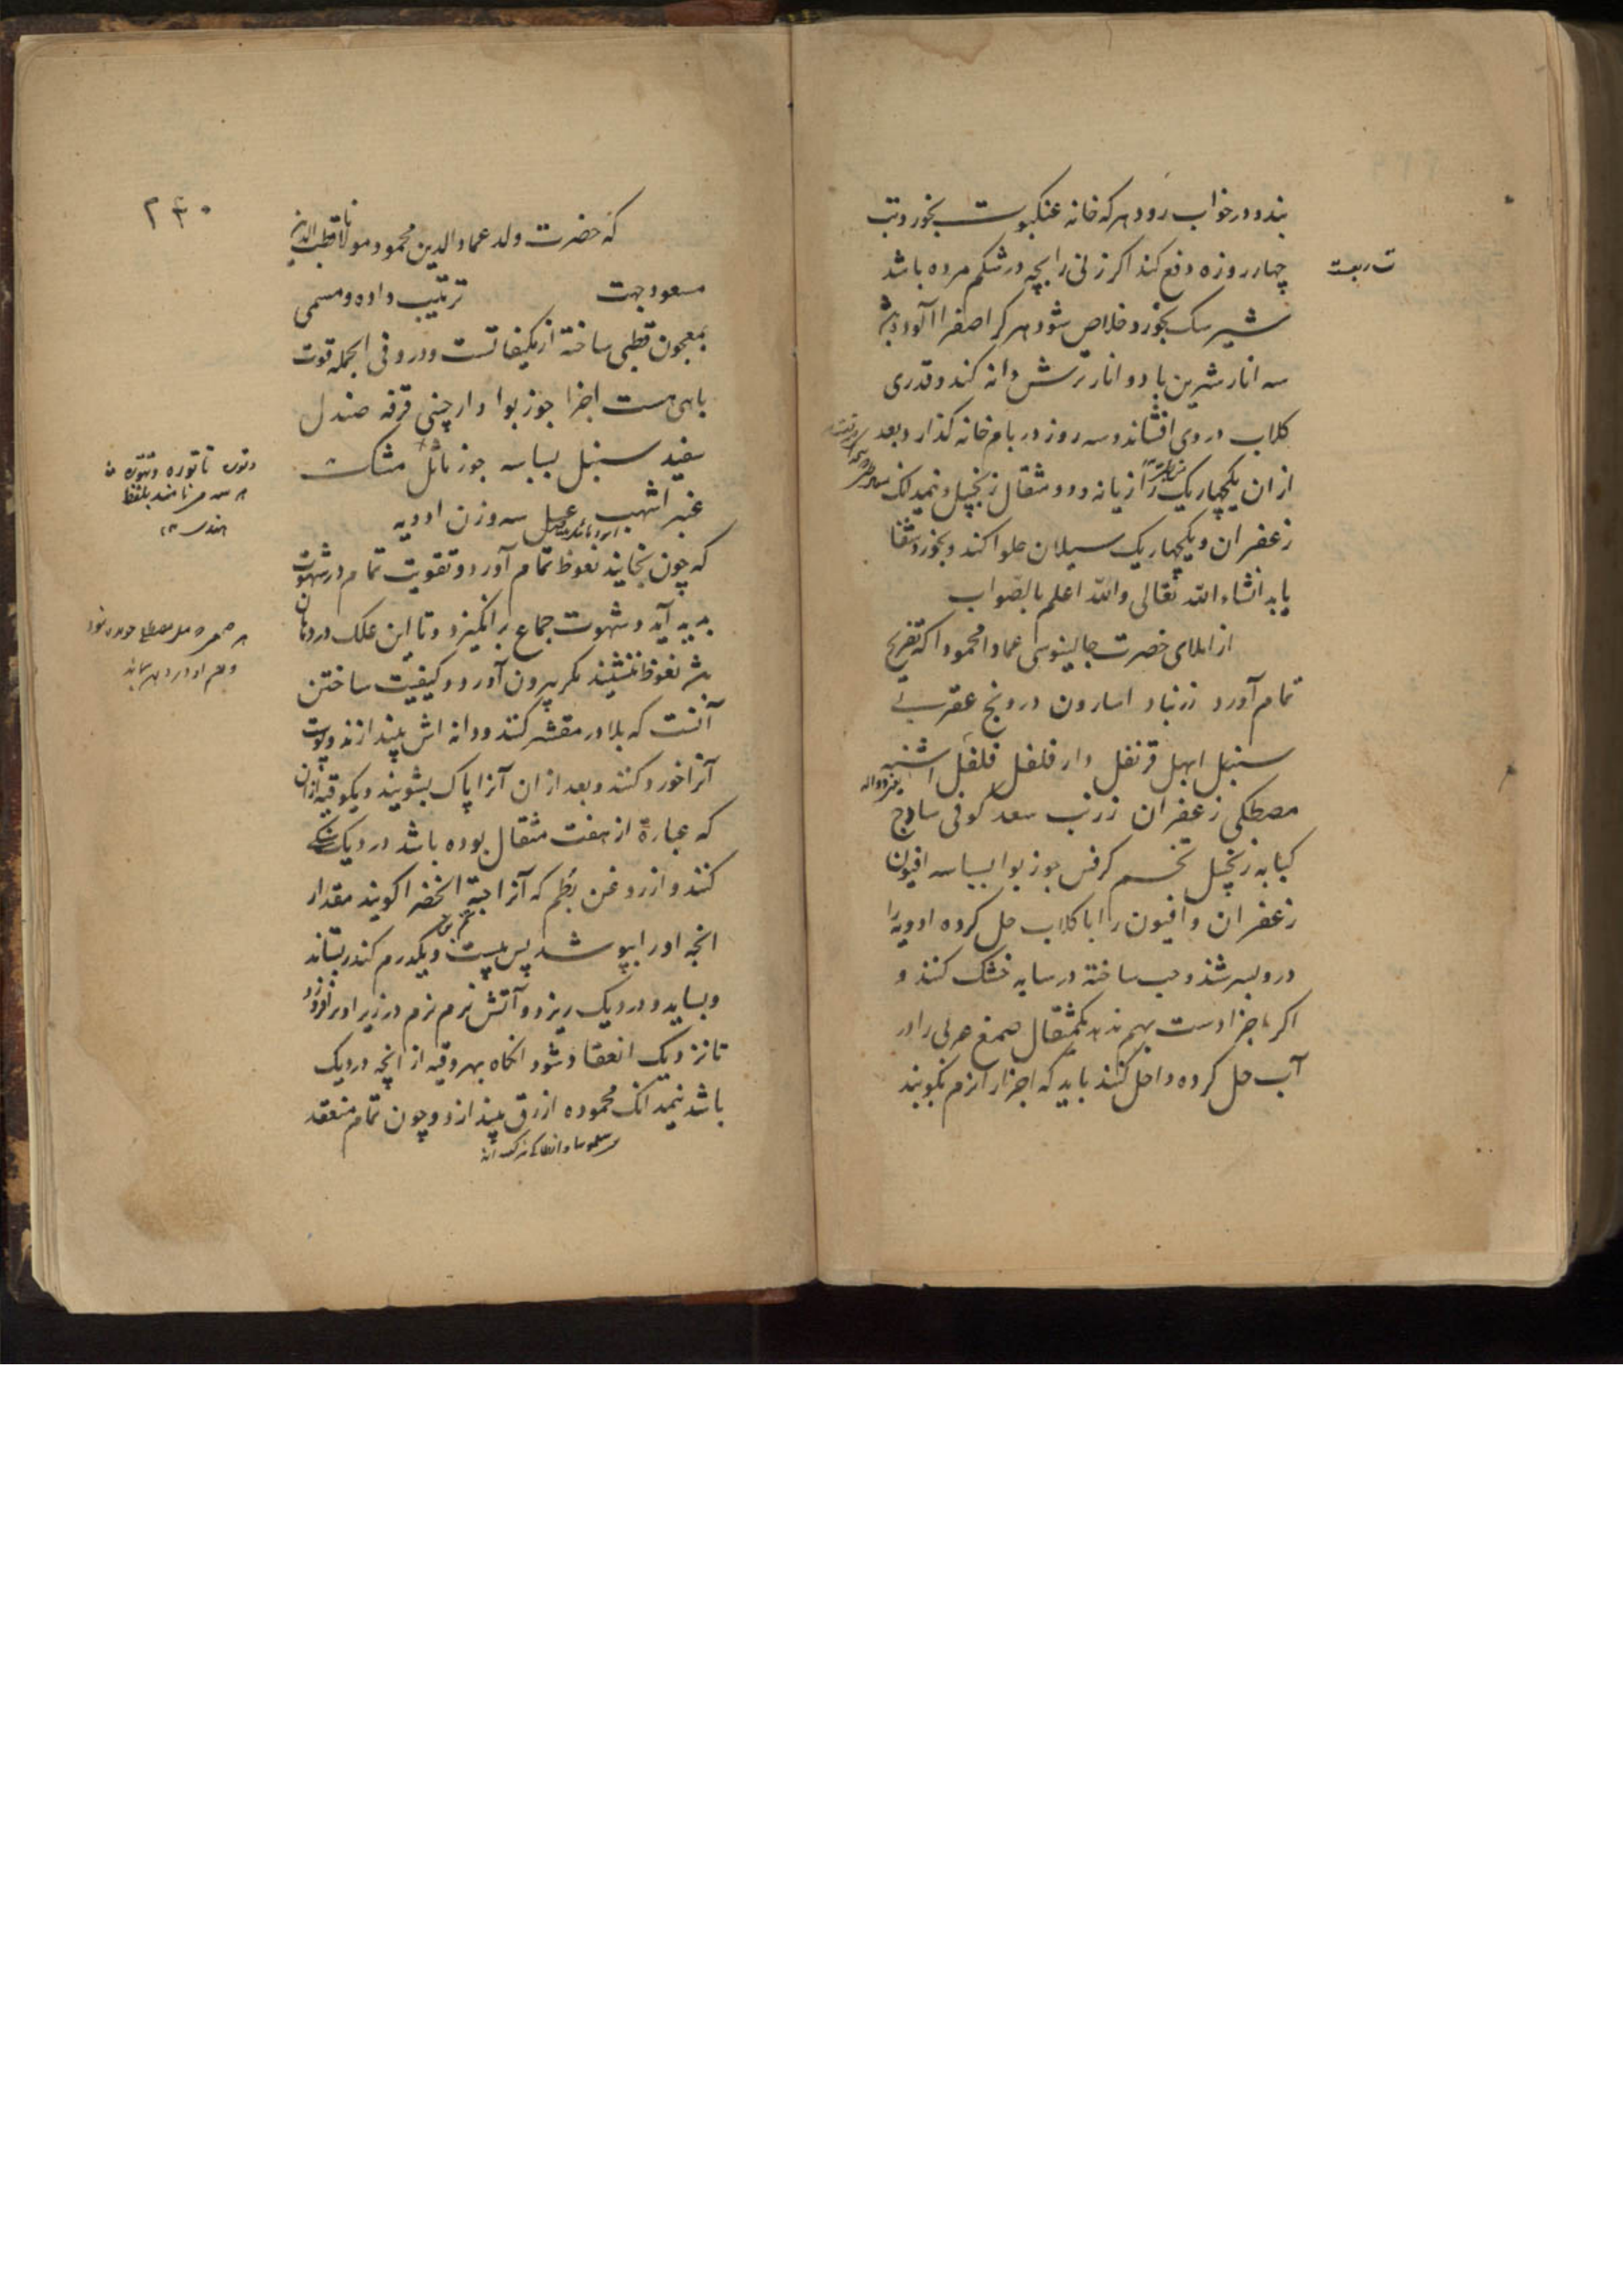 بندد و در خواب رود هر که خانه عنکبوت بخورد تب
چهار روزه دفع کند اگر زنی را بچه در شکم مرده باشد
شیر سک بخورد خلاص شود هر کرا صفرا آلوده باشد
سه انار شیرین با دو انار ترش دانه کند و قدری
کلاب در وی افشاند و سه روز در بام خانه کذارد بعد
از ان یکچهاریک رازیانه و دو مثقال زنجبیل و نیمدانک
زعفران و یکچهاریک سیلان حلوا کند و بخورد شفا
یابد انشاء الله تعالی والله اعلم بالصواب
از املای حضرت جالینوسی عماد محمودا که تفریح
تمام آورد زرنباد اسارون درونج عقربی
سنبل ابهل قرنفل دار فلفل فلفل اشنه
مصطکی زعفران زرنب سعد کوفی ساذج
کبابه زنجبیل تخم کرفس جوز بوا بسباسه افیون
زعفران و افیون را با کلاب حل کرده ادویه را
در و بسرشند و حب ساخته در سایه خشک کنند و
اکر اجزا دست بهم ندهد یکمثقال صمغ عربی را در
آب حل کرده داخل کنند باید که اجزا را نرم بکوبند
۲۴۰
که حضرت ولد عمادالدین محمود و مولانا قطب الدین
مسعود جهت ترتیب داده و مسمی
بمعجون قطبی ساخته از مکیفاتست و درو فی الجمله قوت
باهی هست اجزا جوز بوا دارچینی قرفه صندل
سفید سنبل بسباسه جوز ماثل مشک
عنبر اشهب عسل سه وزن ادویه
که چون بخایند نعوظ تمام آورد و تقویت تمام در شهوت
پدید آید و شهوت جماع برانکیزد و تا این علک در دهان
باشد نعوظ ننشیند مکر بیرون آورد و کیفیت ساختن
آنست که بلادر مقشر کنند و دانه اش بیندازند و پوست
آنرا خورد کنند و بعد از ان آنرا پاک بشویند و یکوقیه ازان
که عبارة از هفت مثقال بوده باشد در دیک سنکی
کنند و از روغن بطم که آنرا حبة الخضرا کویند مقدار
انچه او را بپوشد پس بیست و یکدرم کندر بستاند
و بساید و در دیک ریزد و آتش نرم نرم در زیر او برافروزد
تا نزدیک انعقاد شود انکاه بهر وقیه از انچه در دیک
باشد نیمدانک محموده ازرق بیندازد و چون تمام منعقد